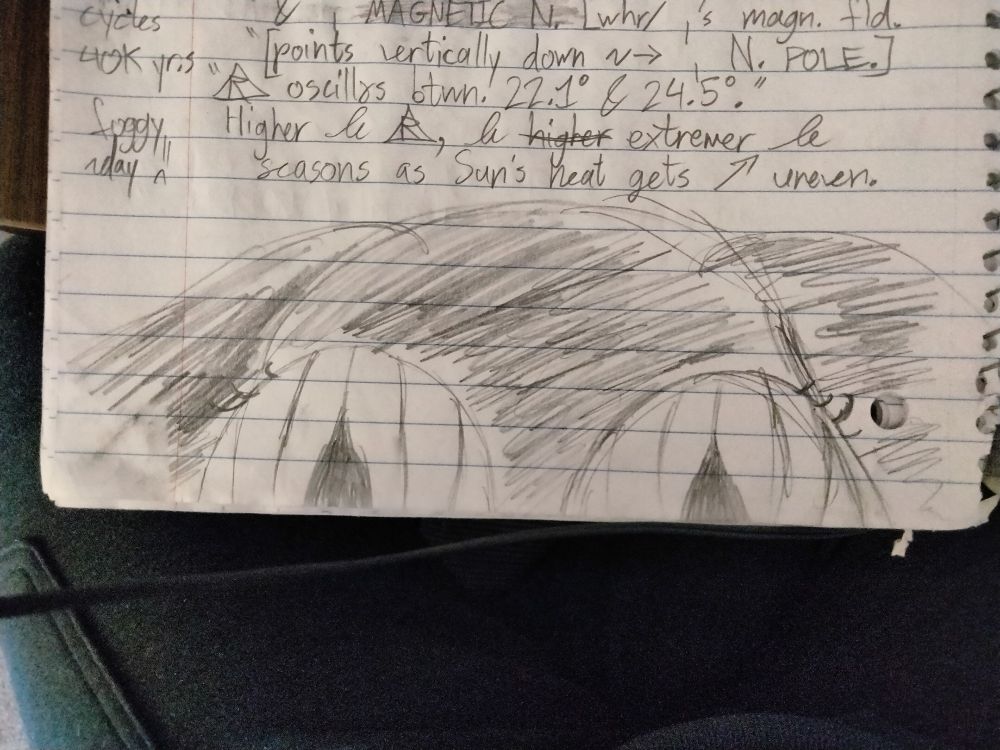 cycles & MAGNETIC N. [whr/ 's magn. fld.
40K yrs "[points vertically down ~→ N. POLE.]
" oscillxs btwn. 22.1° & 24.5°."
foggy Higher le , le higher extremer le
1day seasons as Sun's heat gets ↗ uneven.